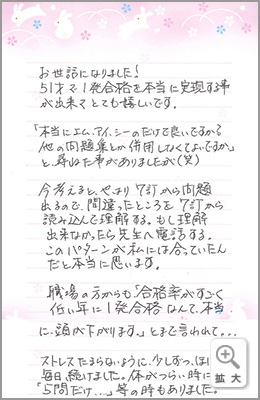 お世話になりました!
51才で1発合格を本当に実現する事
が出来てとても嬉しいです。
「本当にエム、アイ、シーのだけで良いですか?
他の問題集とか併用しなくてよいですか」
と尋ねた事がありましたが(笑)
今考えると、やはり7訂から問題
出るので、間違ったところを7訂から
読み込んで理解する。もし理解
出来なかったら先生へ電話する。
このパターンが私には合っていたん
だと本当に思います。
職場の方からも「合格率がすごく
低い年に1発合格なんて、本当
に、頭が下がります。」とまで言われて...
ストレスたまらないように、少しずつ、ほぼ
毎日、続けました。体がつらい時に
「5問だけ...」等の時もありました。
拡大